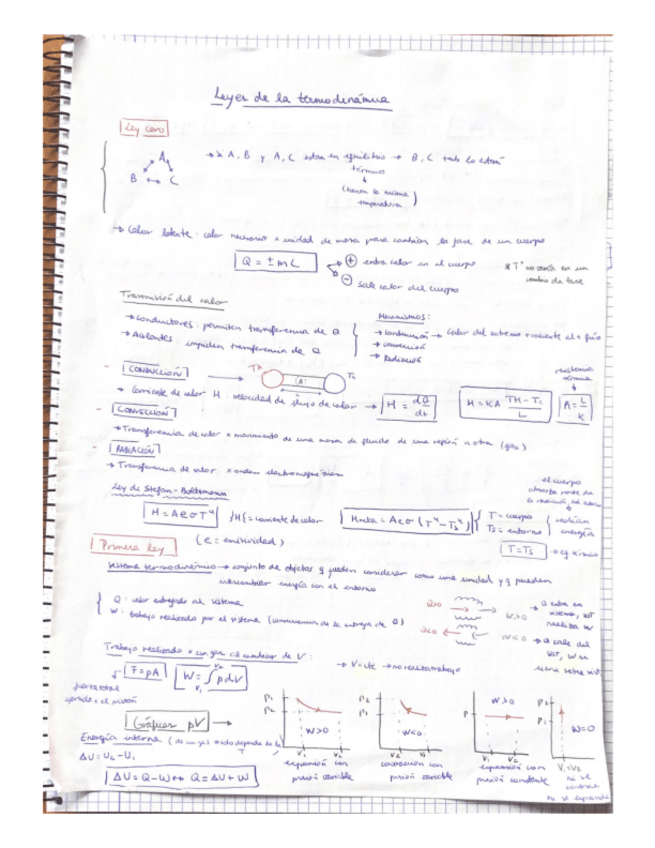 Leyes de la termodinámica
Ley cero
A
B C
→ si A, B y A, C están en equilibrio → B, C tmb lo están
térmico
(tienen la misma
temperatura)
→ Calor latente: calor necesario x unidad de masa para cambiar la fase de un cuerpo
Q = ± m L
+ entra calor en el cuerpo
- sale calor del cuerpo
* Tª no varía en un
cambio de fase
Transmisión del calor
→ Conductores: permiten transferencia de Q
→ Aislantes: impiden transferencia de Q
Mecanismos:
→ conducción → calor del extremo + caliente al + frío
→ convección
→ Radiación
- CONDUCCIÓN
TH Tc
A
L
→ Corriente de calor H: velocidad de flujo de calor → H = dQ/dt
H = KA (TH - Tc)/L
resistencia
térmica
R = L/K
- CONVECCIÓN
→ Transferencia de calor x movimiento de una masa de fluido de una región a otra (gas)
- RADIACIÓN
→ Transferencia de calor x ondas electromagnéticas
Ley de Stefan-Boltzmann
H = AeσT⁴
H = corriente de calor
(e = emisividad)
Hneta = Aeσ (T⁴ - Ts⁴)
T = cuerpo
Ts = entorno
radian
energía
el cuerpo
absorbe parte de
la radiación del
T = Ts → eq térmico
Primera ley
Sistema termodinámico → conjunto de objetos q pueden considerar como una unidad y q pueden
intercambiar energía con el entorno
Q: calor entregado al sistema
W: trabajo realizado por el sistema (consecuencia de la entrega de Q)
Q>0 W>0
Q<0 W<0
→ Q entra en
sistema, sist
realiza W
→ Q sale del
sist, W se
realiza sobre sist
Trabajo realizado x un gas al cambiar de V:
F = pA
W = ∫ p dV
V2
V1
→ V = cte → no realiza trabajo
fuerza total
ejercida x el pistón
Gráficas pV →
P1
P2
W>0
V1 V2
expansión con
presión variable
P2
P1
W<0
V2 V1
contracción con
presión variable
P
W>0
V1 V2
expansión con
presión constante
P2
P1
W=0
V1=V2
no se
contrae
no se expande
Energía interna (de un gas → solo depende de la
T
ΔU = U2 - U1
ΔU = Q - W ↔ Q = ΔU + W